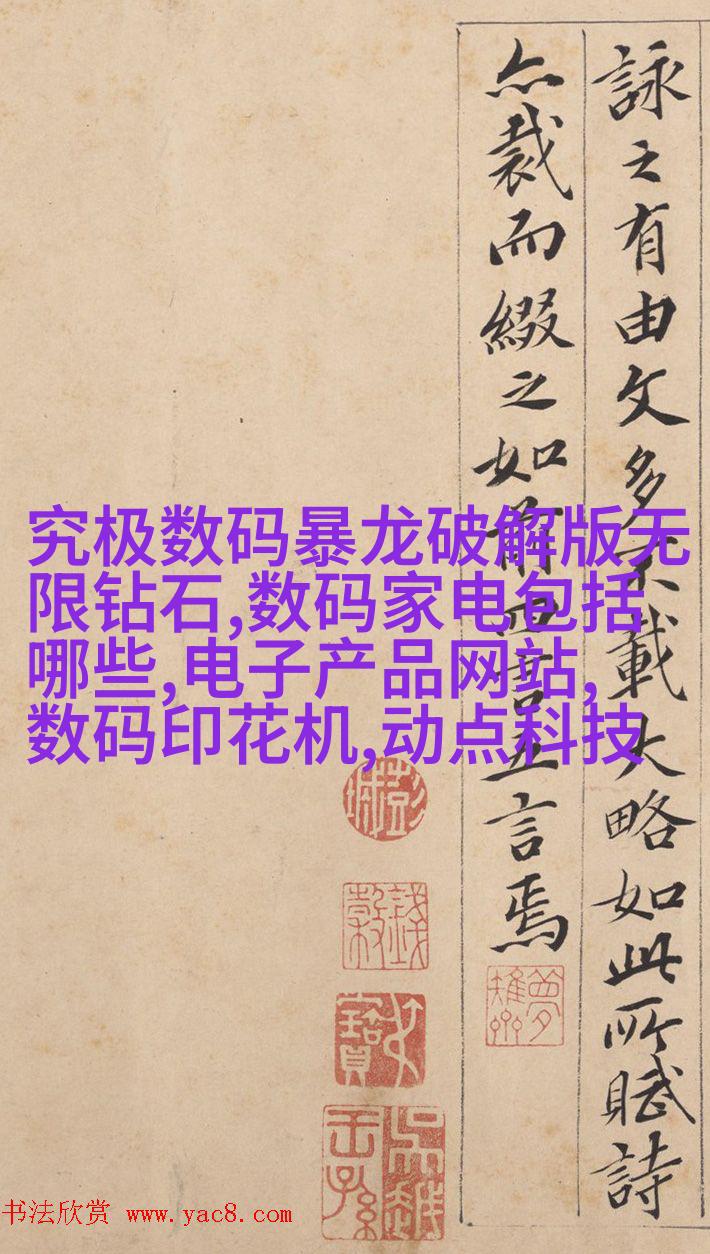 詠之有由文多不載大略如此所賦詩
亦裁而綴之如前四言五言焉
究极数码暴龙破解版无
限钻石,数码家电包括
哪些,电子产品网站,
数码印花机,动点科技
书法欣赏 www.yac8.com